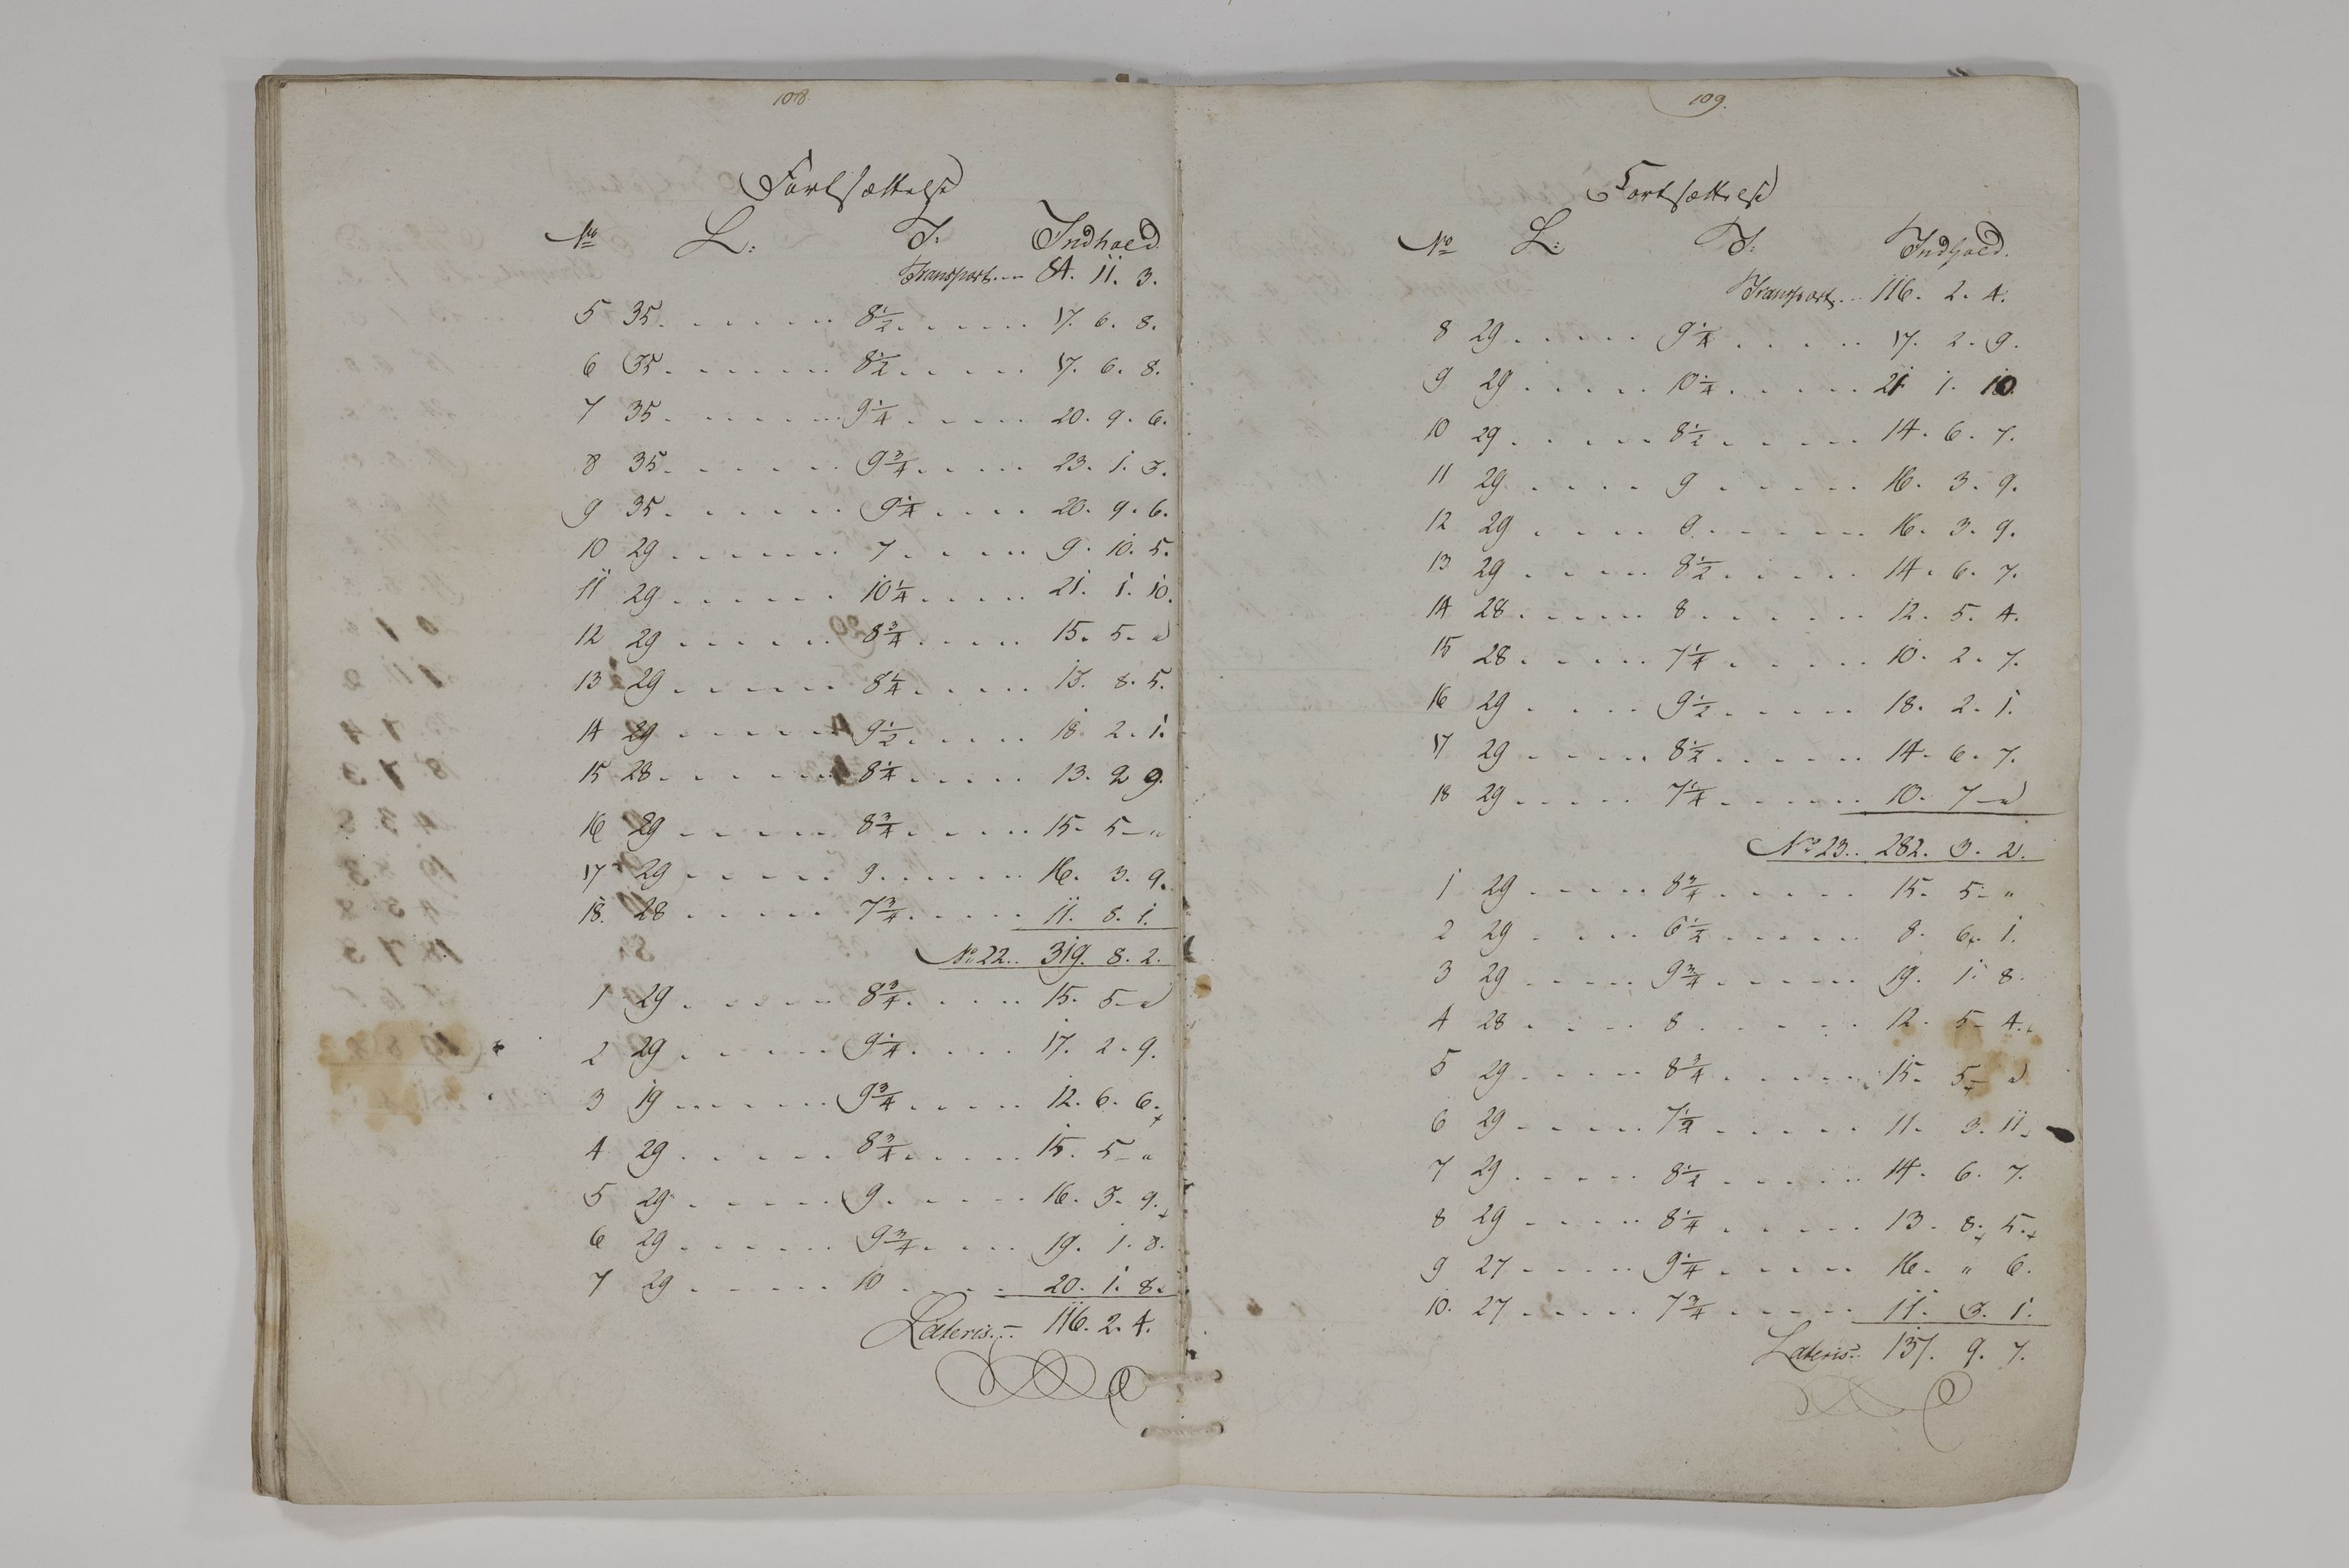 108.
Fortsættelse
No L: T: Indhold.
Transport... 84. 11. 3.
5 35. . . . . . . 8 1/2. . . . . . 17. 6. 8.
6 35. . . . . . . 8 1/2. . . . . . 17. 6. 8.
7 35. . . . . . . 9 1/4 . . . . . 20. 9. 6.
8 35. . . . . . . 9 3/4. . . . . . 23. 1. 3.
9 35. . . . . . . 9 1/4 . . . . . 20. 9. 6.
10 29 . . . . . . 7 . . . . . 9. 10. 5.
11 29 . . . . . . 10 1/4. . . . . 21. 1. 10.
12 29 . . . . . . 8 3/4 . . . . . 15. 5. "
13 29 . . . . . . 8 1/4. . . . . 13. 8. 5.
14 29 . . . . . . 9 1/2. . . . . 18. 2. 1.
15 28 . . . . . . 8 1/4 . . . . . 13. 2 9.
16 29 . . . . . . 8 3/4 . . . . . 15. 5 - "
17 29 . . . . . . 9. . . . . . 16. 3. 9.
18. 28 . . . . . . 7 3/4. . . . . 11. 8. 1.
No 22.. 319. 8. 2.
1 29 . . . . . . 8 3/4. . . . . 15. 5 - "
2 29 . . . . . . 9 1/4. . . . . 17. 2. 9.
3 19 . . . . . . 9 3/4. . . . . 12. 6. 6.
4 29 . . . . . . 8 3/4. . . . . 15. 5 - "
5 29 . . . . . . 9. . . . . . 16. 3. 9.
6 29 . . . . . . 9 3/4. . . . . 19. 1. 8.
7 29 . . . . . . 10 . . . . . 20. 1. 8.
Lateris... 116. 2. 4.
109.
Fortsættelse
No L: T: Indhold.
Transport... 116. 2. 4.
8 29 . . . . . 9 1/4 . . . . . 17. 2. 9.
9 29 . . . . . 10 1/4. . . . . 21 1. 10.
10 29 . . . . . 8 1/2 . . . . . 14. 6. 7.
11 29 . . . . . 9 . . . . . 16. 3. 9.
12 29 . . . . . 9. . . . . . 16. 3. 9.
13 29 . . . . . 8 1/2 . . . . . 14. 6. 7.
14 28 . . . . . 8 . . . . . 12. 5. 4.
15 28 . . . . . 7 1/4 . . . . . 10. 2. 7.
16 29 . . . . . 9 1/2 . . . . . 18. 2. 1.
17 29 . . . . . 8 1/2 . . . . . 14. 6. 7.
18 29 . . . . . 7 1/4 . . . . . 10. 7 - "
No 23.. 282. 3. 2.
1 29 . . . . . 8 3/4 . . . . . 15. 5 - "
2 29 . . . . . 6 1/2 . . . . . 8. 6. 1.
3 29 . . . . . 9 3/4 . . . . . 19. 1. 8.
4 28 . . . . . 8 . . . . . 12. 5 - 4.
5 29 . . . . . 8 3/4 . . . . . 15. 5 - "
6 29 . . . . . 7 1/2 . . . . . 11. 3. 11.
7 29 . . . . . 8 1/2 . . . . . 14. 6. 7.
8 29 . . . . . 8 1/4 . . . . . 13. 8. 5.
9 27 . . . . . 9 1/4 . . . . . 16. " 6.
10. 27 . . . . . 7 3/4 . . . . . 11. 3. 1.
Lateris.. 137. 9. 7.